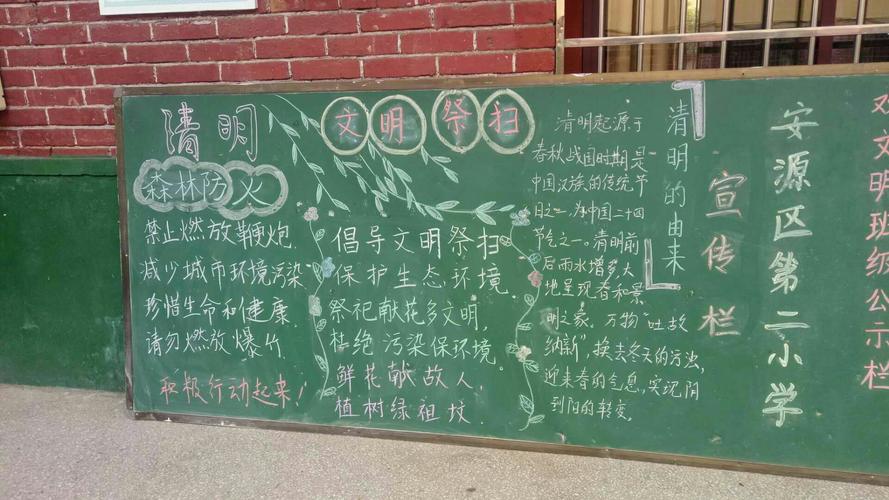 清明
森林防火
禁止燃放鞭炮
减少城市环境污染
珍惜生命和健康
请勿燃放爆竹
积极行动起来!
文明祭扫
倡导文明祭扫
保护生态环境
祭祀献花多文明,
杜绝污染保环境。
鲜花献故人,
植树绿祖坟
清明的由来
清明起源于
春秋战国时期是
中国汉族的传统节
日之一,为中国二十四
节气之一。清明前
后雨水增多大
地呈现春和景
明之象。万物“吐故
纳新”,换去冬天的污浊,
迎来春的气息,实现阴
到阳的转变。
宣传栏
安源区第二小学
文明班级公示栏